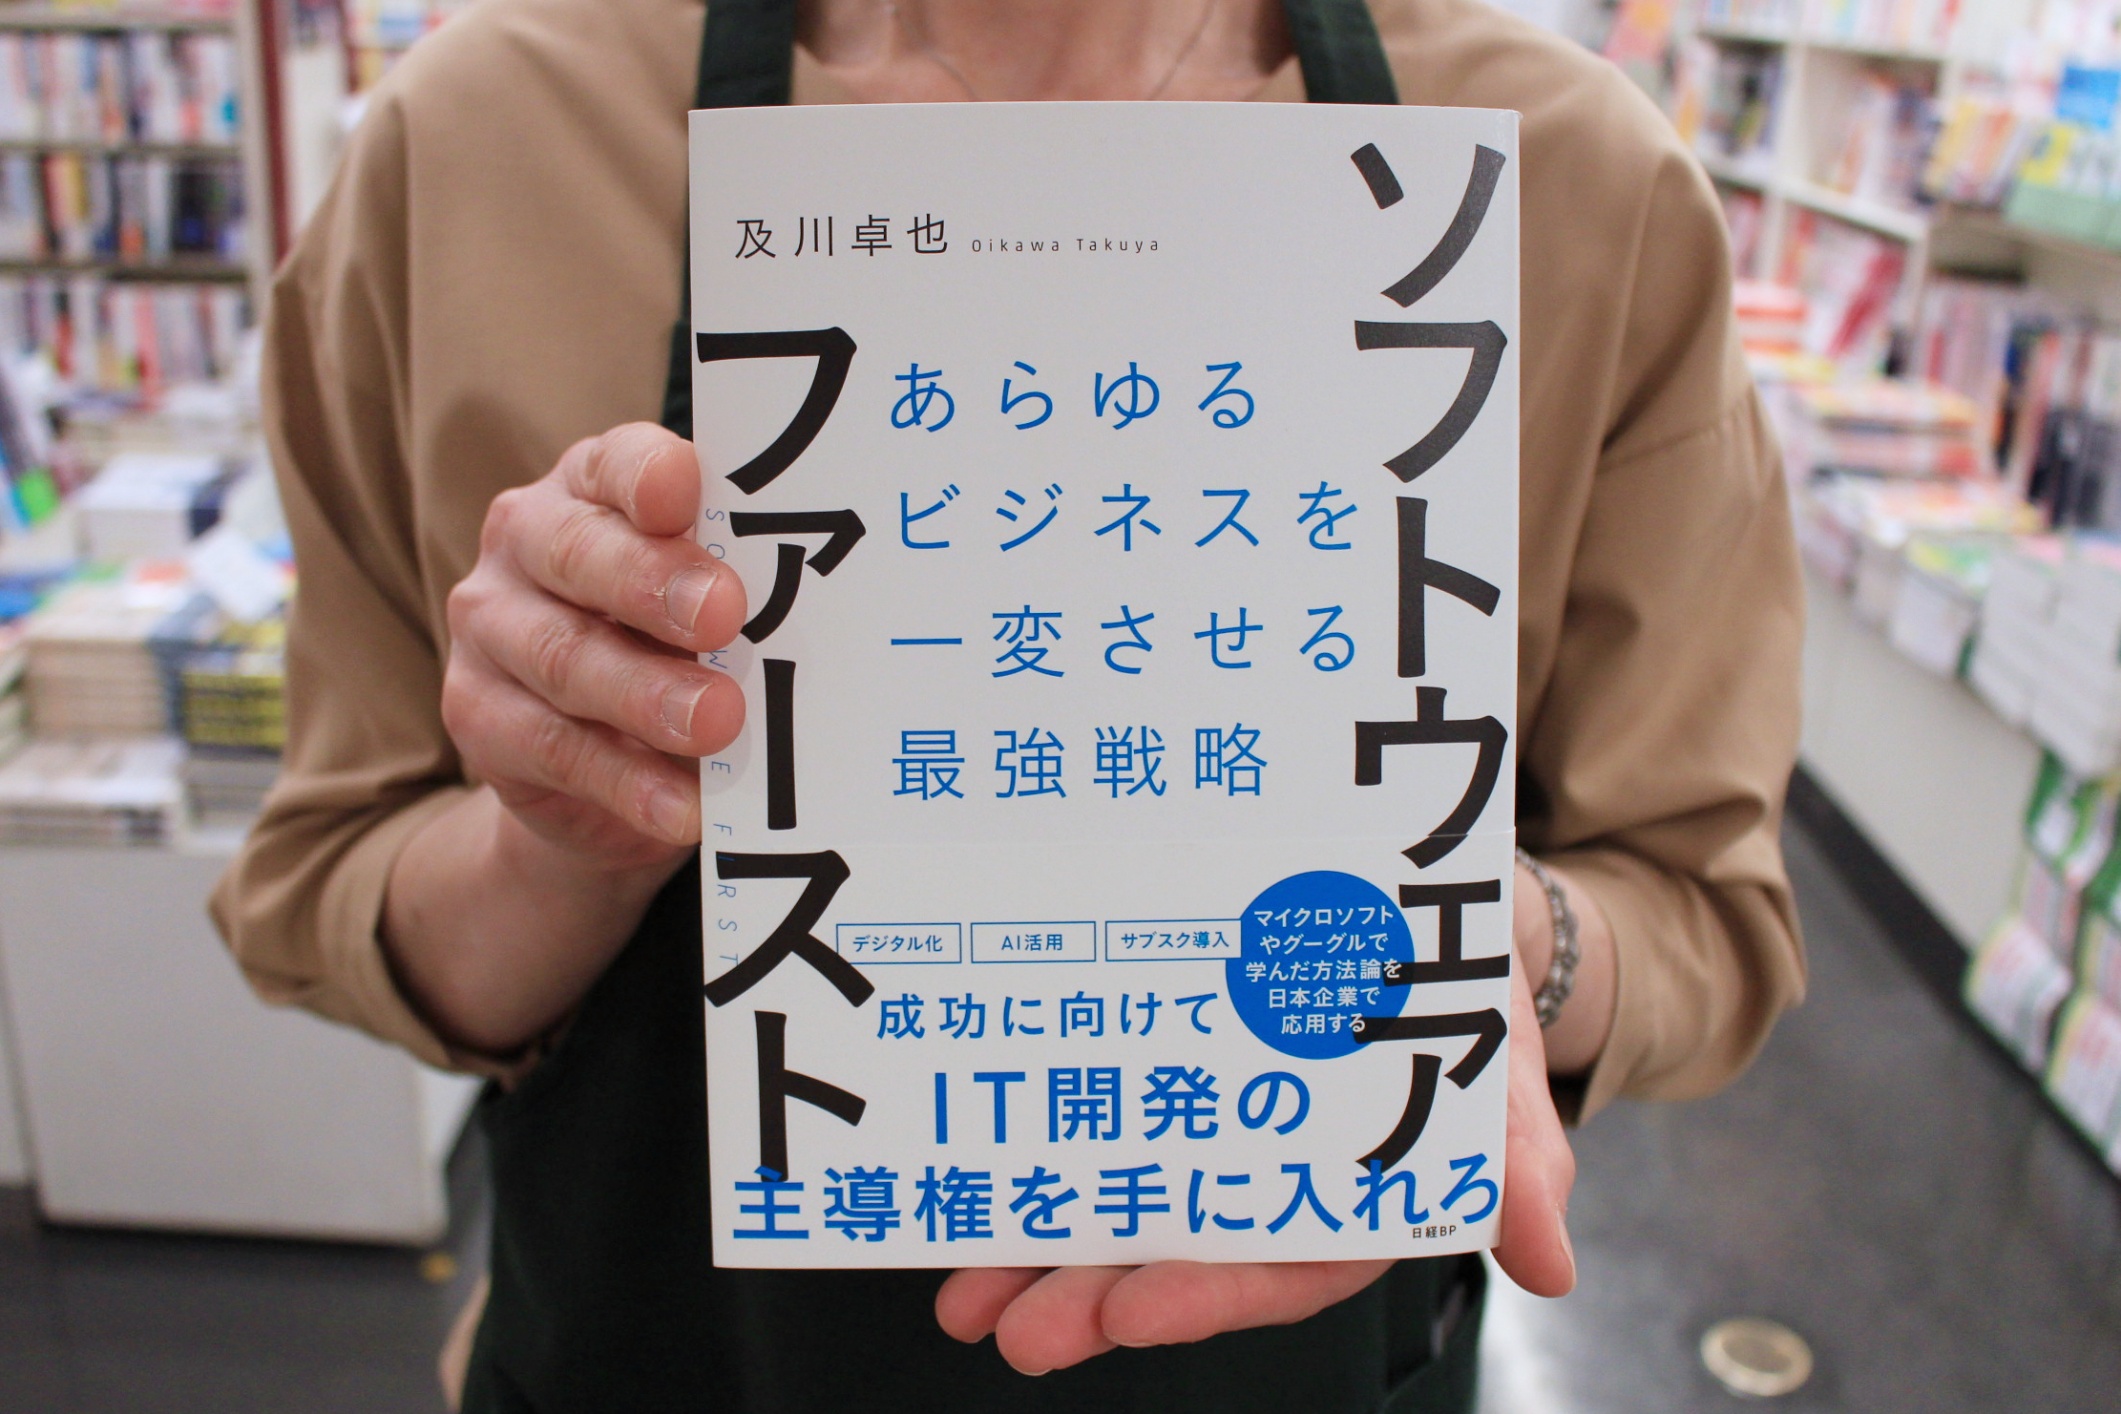 ソフトウェア
ファースト
及川卓也 Oikawa Takuya
あらゆる
ビジネスを
一変させる
最強戦略
デジタル化
AI活用
サブスク導入
マイクロソフト
やグーグルで
学んだ方法論を
日本企業で
応用する
成功に向けて
IT開発の
主導権を手に入れろ
日経BP